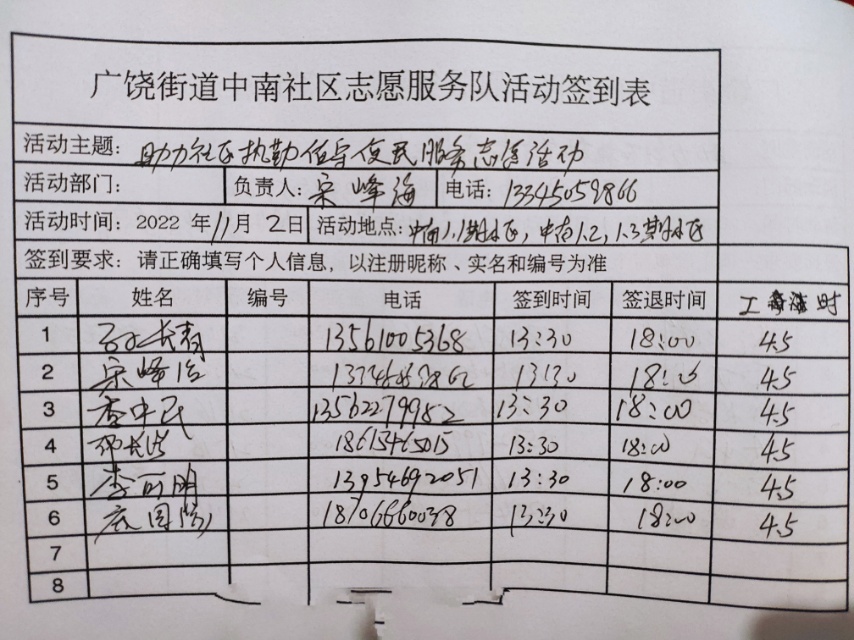 广饶街道中南社区志愿服务队活动签到表
活动主题: 助力社区执勤值守便民服务志愿活动
活动部门: 负责人: 宋峰海 电话: 13345059866
活动时间: 2022 年 11 月 2 日 活动地点: 中南1.1期小区, 中南1.2, 1.3期小区
签到要求: 请正确填写个人信息, 以注册昵称、实名和编号为准
序号 姓名 编号 电话 签到时间 签退时间 工时
1 孙长青 13561005368 13:30 18:00 4.5
2 宋峰海 13:30 18:00 4.5
3 李中民 13562279982 13:30 18:00 4.5
4 18615465015 13:30 18:00 4.5
5 李可明 13954692051 13:30 18:00 4.5
6 18706660038 13:30 18:00 4.5
7
8